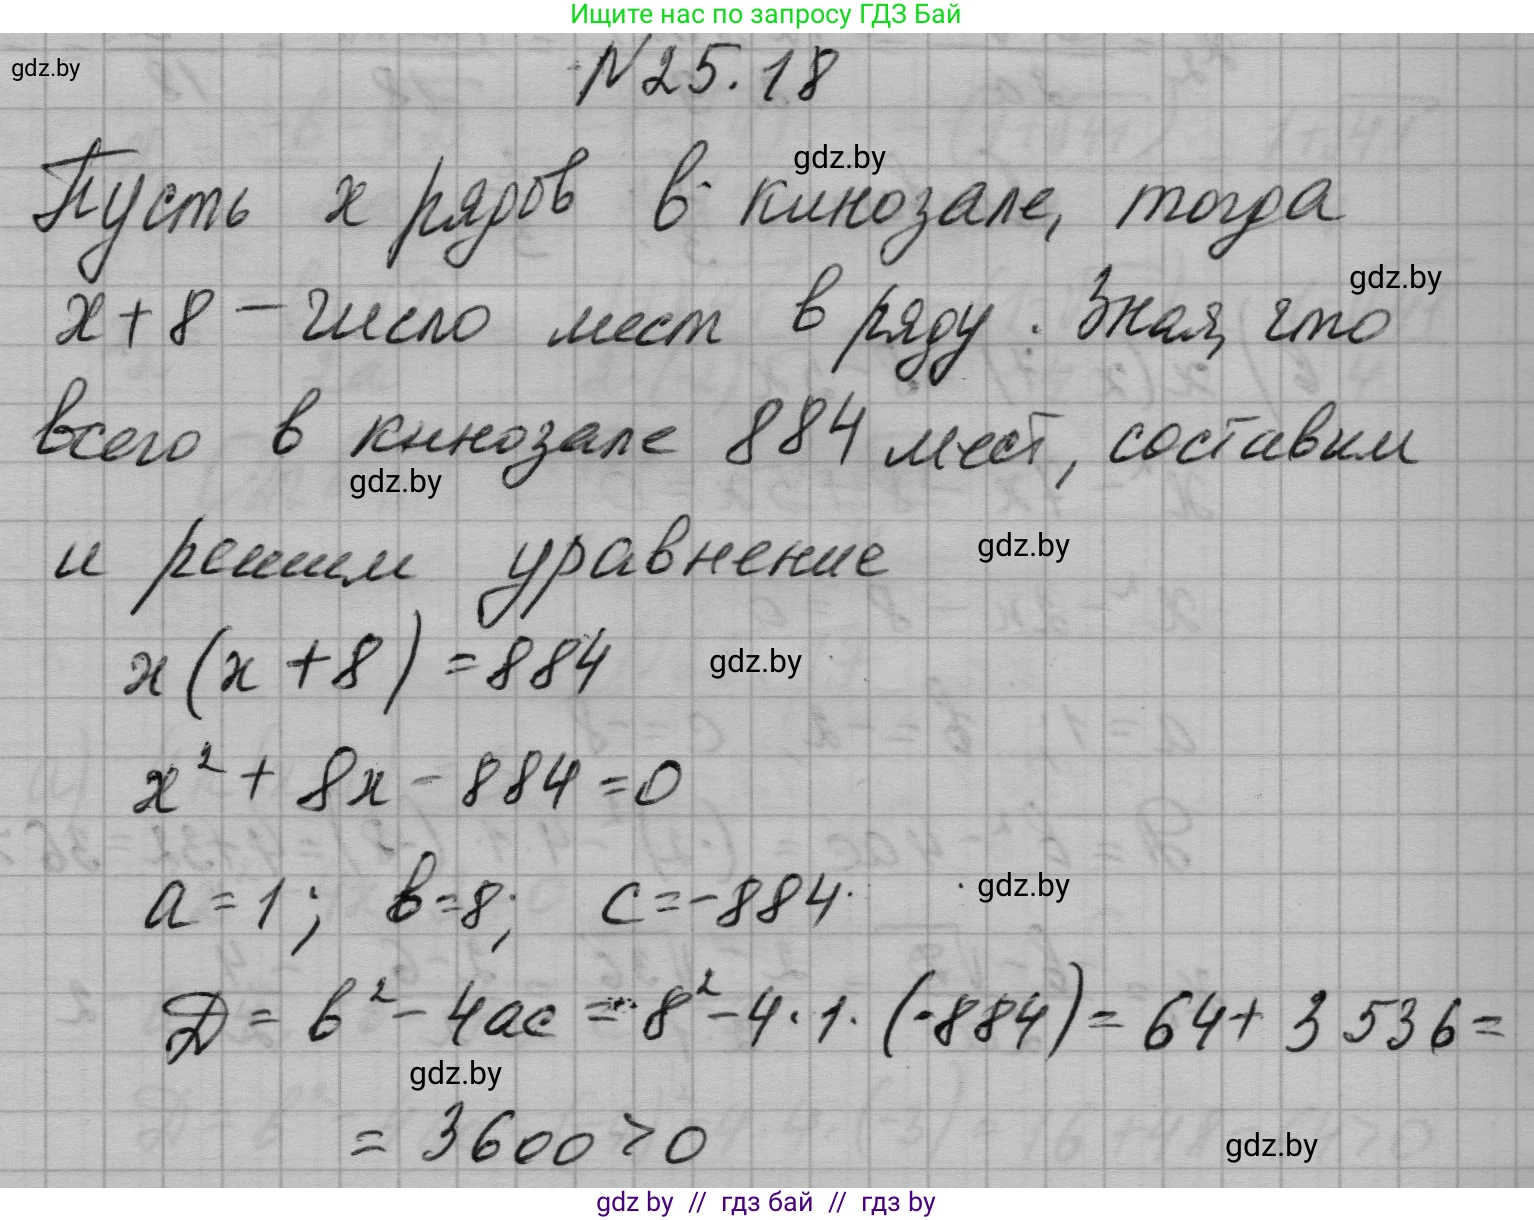 Ищите нас по запросу ГДЗ Бай
gdz.by
№25.18
gdz.by
Пусть x рядов в кинозале, тогда
gdz.by
x+8 – число мест в ряду. Зная, что
всего в кинозале 884 мест, составим
gdz.by
и решим уравнение
gdz.by
x(x+8)=884
gdz.by
x²+8x-884=0
a=1; b=8; c=-884.
gdz.by
D = b²-4ac = 8²-4·1·(-884)= 64+3536=
gdz.by
= 3600>0
gdz.by
gdz by // гдз бай // гдз by